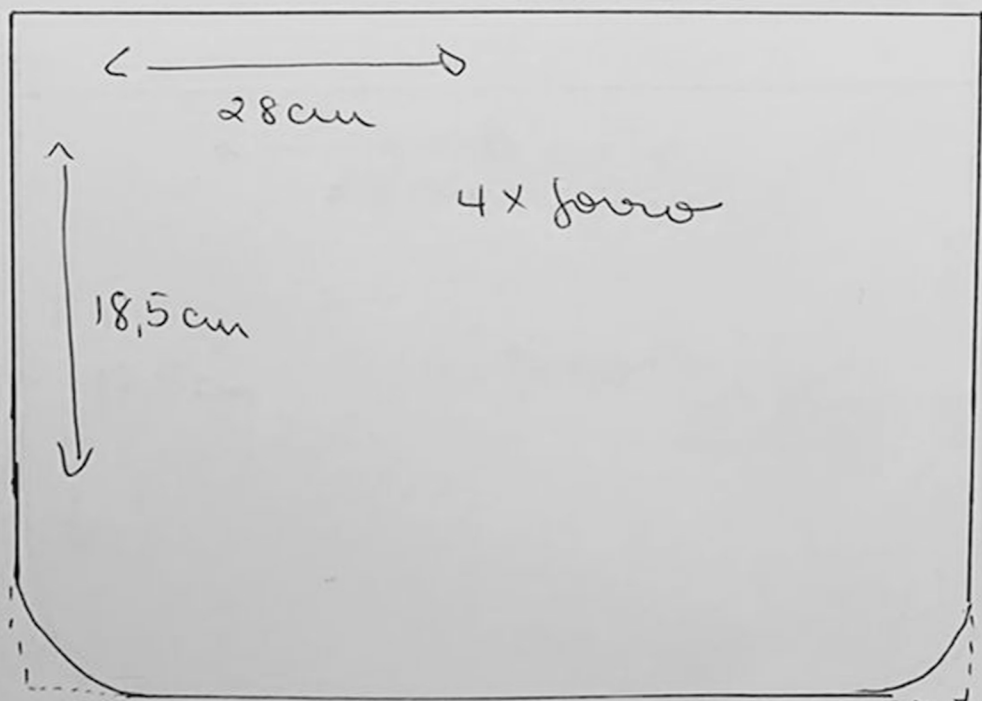 28cm
4x forro
18,5cm